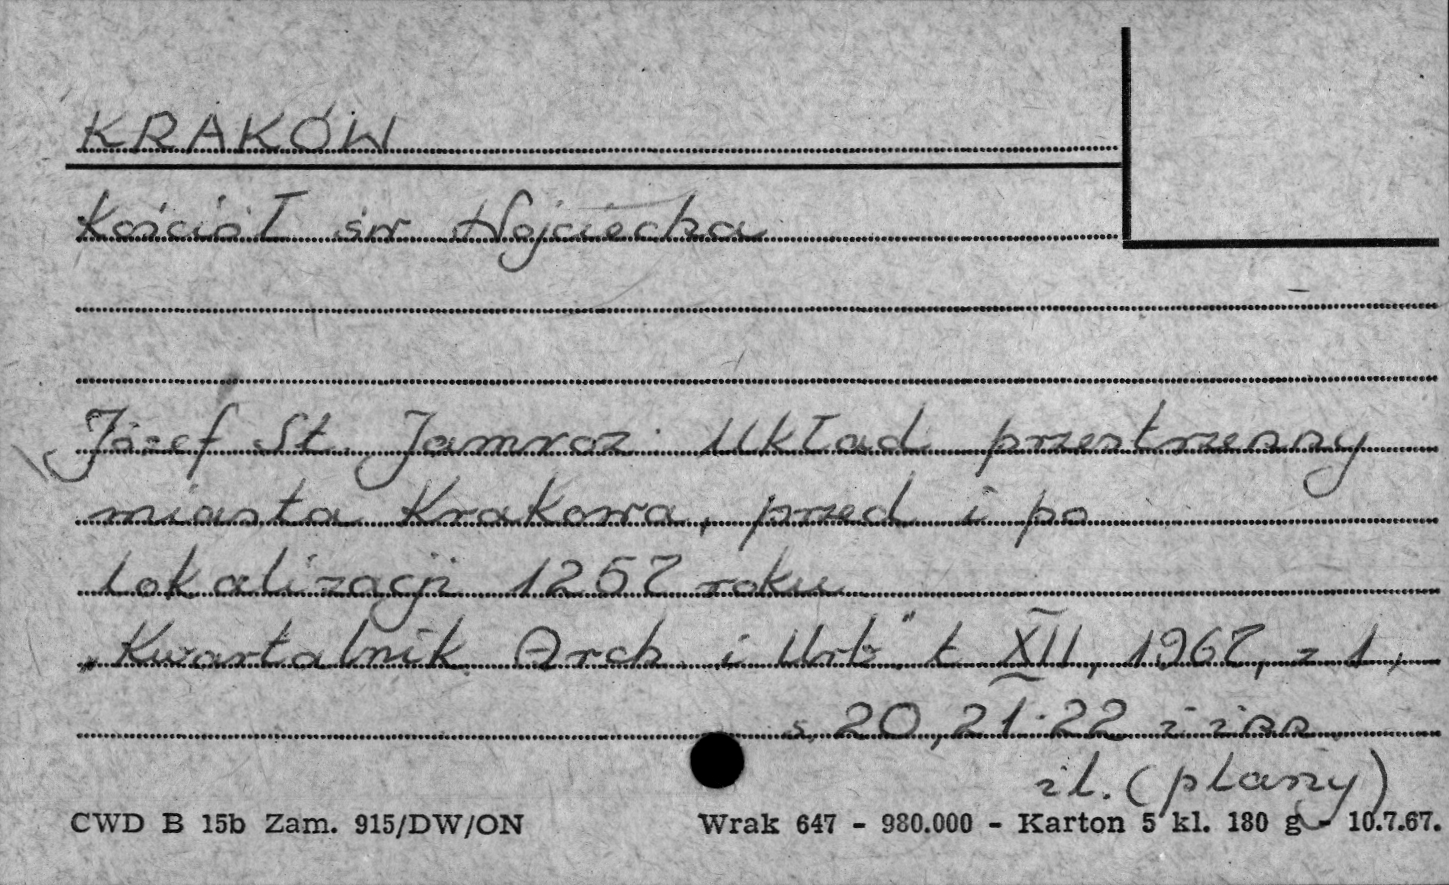 KRAKÓW
Kościół św Wojciecha
Józef St. Jamroz. Układ przestrzenny
miasta Krakowa, przed i po
lokalizacji 1257 roku
„Kwartalnik Arch. i Urb." t XII, 1967, z 1,
s. 20, 21-22 i inn.
il. (plany)
CWD B 15b Zam. 915/DW/ON
Wrak 647 - 980.000 - Karton 5 kl. 180 g - 10.7.67.